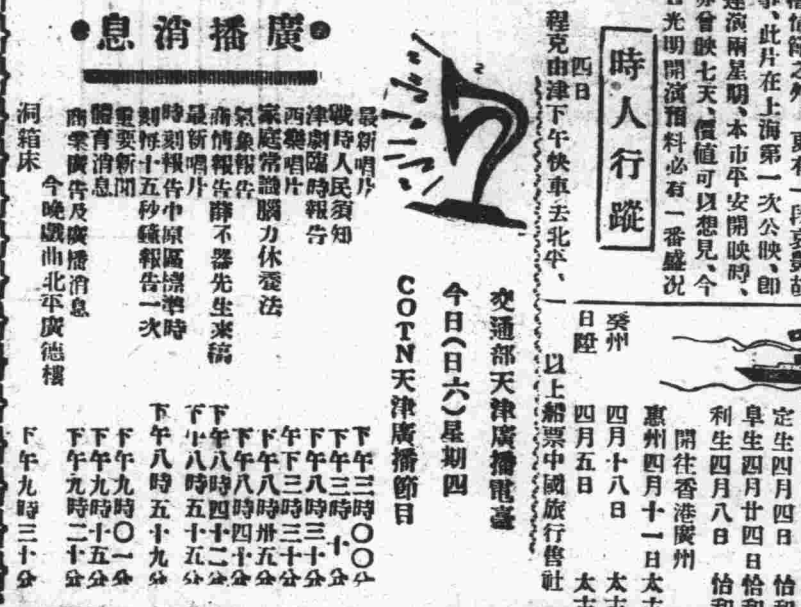 更有一段哀艷故
事、此片在上海第一次公映、即
連演兩星期、本市平安開映時、
亦曾映七天、價值可以想見、今
日光明開演預料必有一番盛况
時人行蹤
四日
程克由津下午快車去北平、
定生四月四日 怡和
阜生四月廿四日 怡和
利生四月八日 怡和
開往香港廣州
惠州四月十一日太古
癸州 四月十八日 太古
日陞 四月五日
以上船票中國旅行售社
●廣播消息●
交通部天津廣播電臺
今日(日六)星期四
COTN天津廣播節目
最新唱片 下午三時〇〇分
戰時人民須知 下午三時十分
津劇臨時報告 下午八時三十分
西樂唱片 午下三時三十分
家庭常識腦力休養法 下午八時卅五分
氣象報告 下午八時四十分
商情報告薛不器先生來稿 下午八時四十二分
最新唱片 下午八時五十五分
時刻報告中原區標準時
刻每十五秒鐘報告一次 下午八時五十九分
重要新聞 下午九時〇一分
體育消息 下午九時十五分
商業廣告及廣播消息 下午九時二十分
今晚戲曲北平廣德樓
洞箱床 下午九時三十分